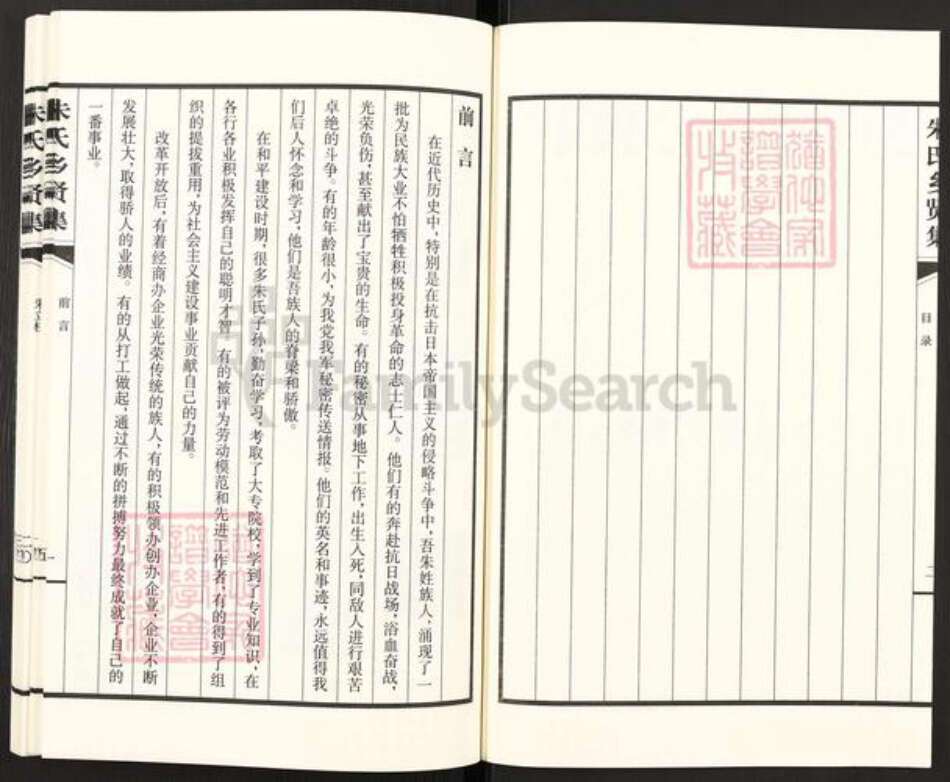 朱氏乡贤集
目录
二
前言
在近代历史中，特别是在抗击日本帝国主义的侵略斗争中，吾朱姓族人，涌现了一
批为民族大业不怕牺牲积极投身革命的志士仁人。他们有的奔赴抗日战场，浴血奋战，
光荣负伤，甚至献出了宝贵的生命。有的秘密从事地下工作，出生入死，同敌人进行艰苦
卓绝的斗争。有的年龄很小，为我党我军秘密传送情报。他们的英名和事迹，永远值得我
们后人怀念和学习，他们是吾族人的脊梁和骄傲。
在和平建设时期，很多朱氏子孙，勤奋学习，考取了大专院校，学到了专业知识，在
各行各业积极发挥自己的聪明才智。有的被评为劳动模范和先进工作者，有的得到了组
织的提拔重用，为社会主义建设事业贡献自己的力量。
改革开放后，有着经商办企业光荣传统的族人，有的积极领办创办企业，企业不断
发展壮大，取得骄人的业绩。有的从打工做起，通过不断的拼搏努力最终成就了自己的
一番事业。
朱氏乡贤集
前言
一
朱氏乡贤集
FamilySearch